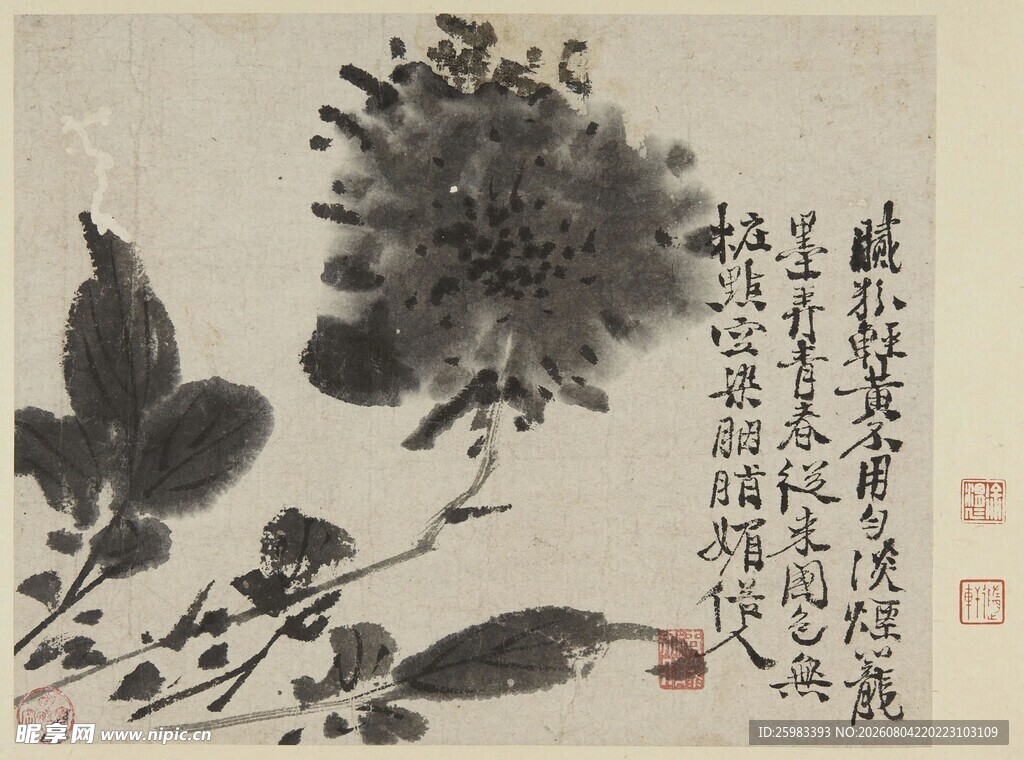 膩粉輕黃不用勻淡煙籠
墨弄青春從來國色無
粧點空染胭脂媚俗人
昵享网 www.nipic.cn
ID:25983393 NO:20260804220223103109